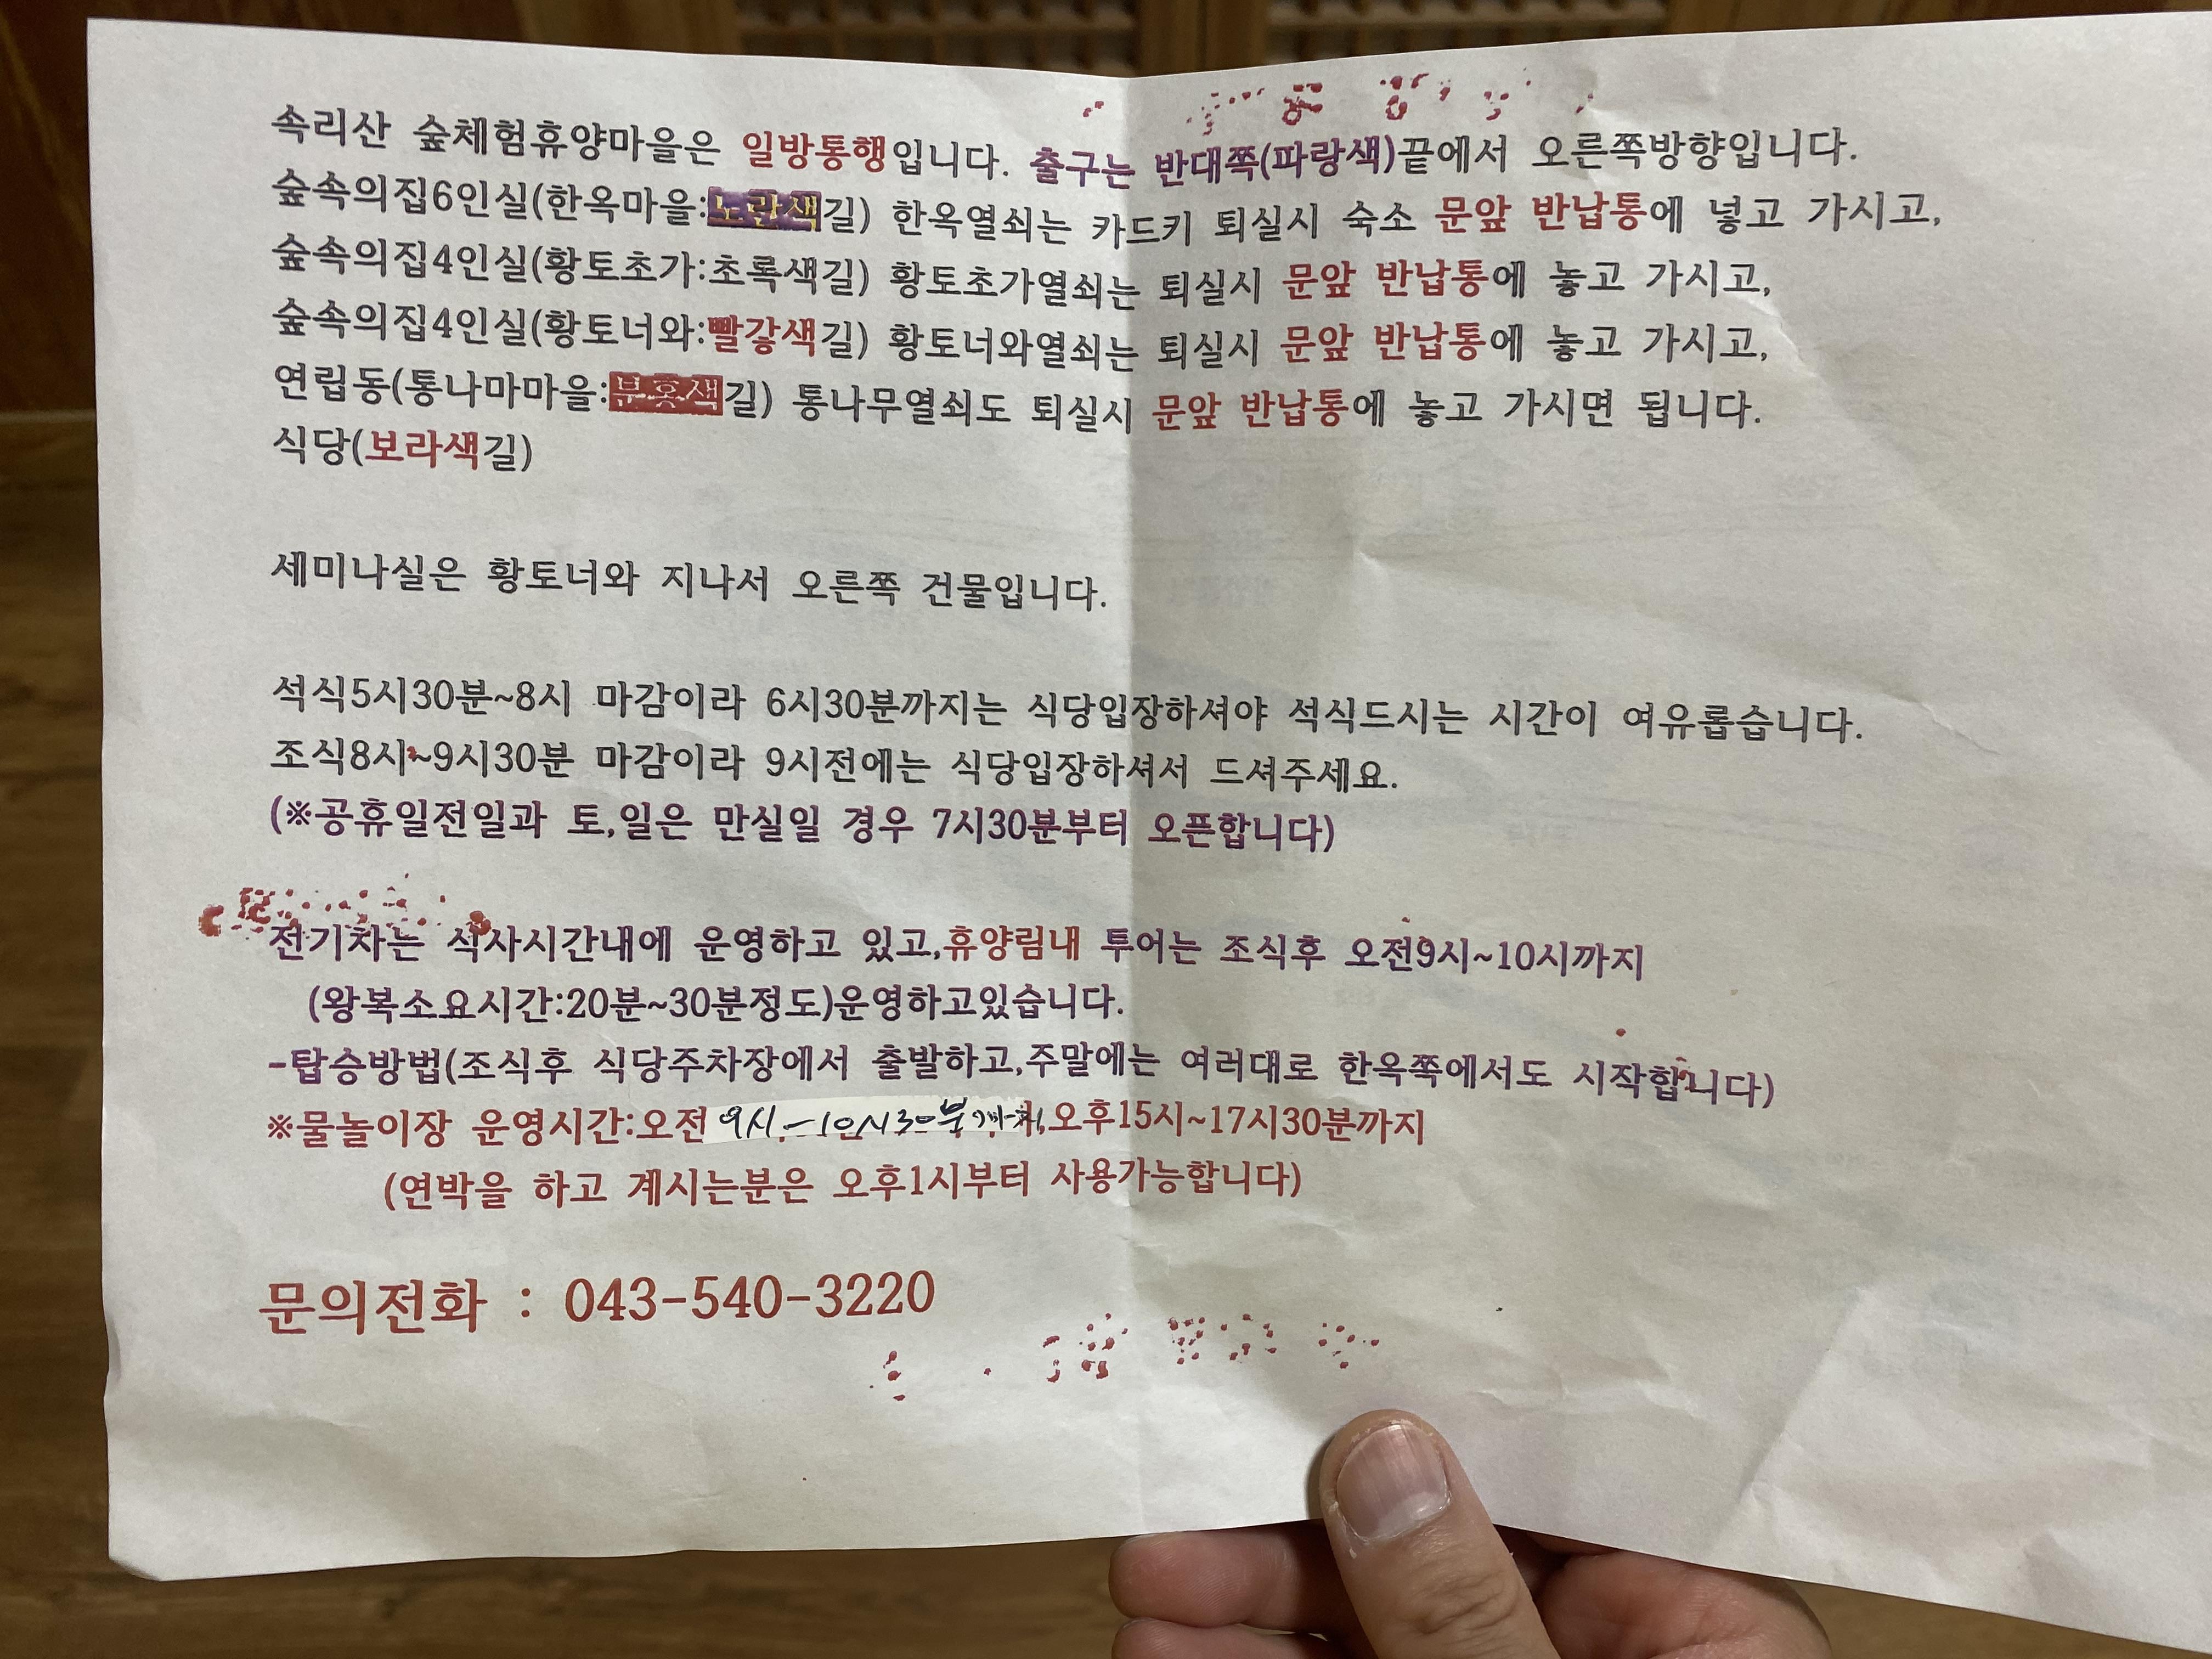 속리산 숲체험휴양마을은 일방통행입니다. 출구는 반대쪽(파랑색)끝에서 오른쪽방향입니다.
숲속의집6인실(한옥마을:노란색길) 한옥열쇠는 카드키 퇴실시 숙소 문앞 반납통에 넣고 가시고,
숲속의집4인실(황토초가:초록색길) 황토초가열쇠는 퇴실시 문앞 반납통에 놓고 가시고,
숲속의집4인실(황토너와:빨갛색길) 황토너와열쇠는 퇴실시 문앞 반납통에 놓고 가시고,
연립동(통나마마을:분홍색길) 통나무열쇠도 퇴실시 문앞 반납통에 놓고 가시면 됩니다.
식당(보라색길)
세미나실은 황토너와 지나서 오른쪽 건물입니다.
석식5시30분~8시 마감이라 6시30분까지는 식당입장하셔야 석식드시는 시간이 여유롭습니다.
조식8시~9시30분 마감이라 9시전에는 식당입장하셔서 드셔주세요.
(※공휴일전일과 토,일은 만실일 경우 7시30분부터 오픈합니다)
전기차는 식사시간내에 운영하고 있고,휴양림내 투어는 조식후 오전9시~10시까지
(왕복소요시간:20분~30분정도)운영하고있습니다.
-탑승방법(조식후 식당주차장에서 출발하고,주말에는 여러대로 한옥쪽에서도 시작합니다)
※물놀이장 운영시간:오전 9시-10시30분까지,오후15시~17시30분까지
(연박을 하고 계시는분은 오후1시부터 사용가능합니다)
문의전화 : 043-540-3220